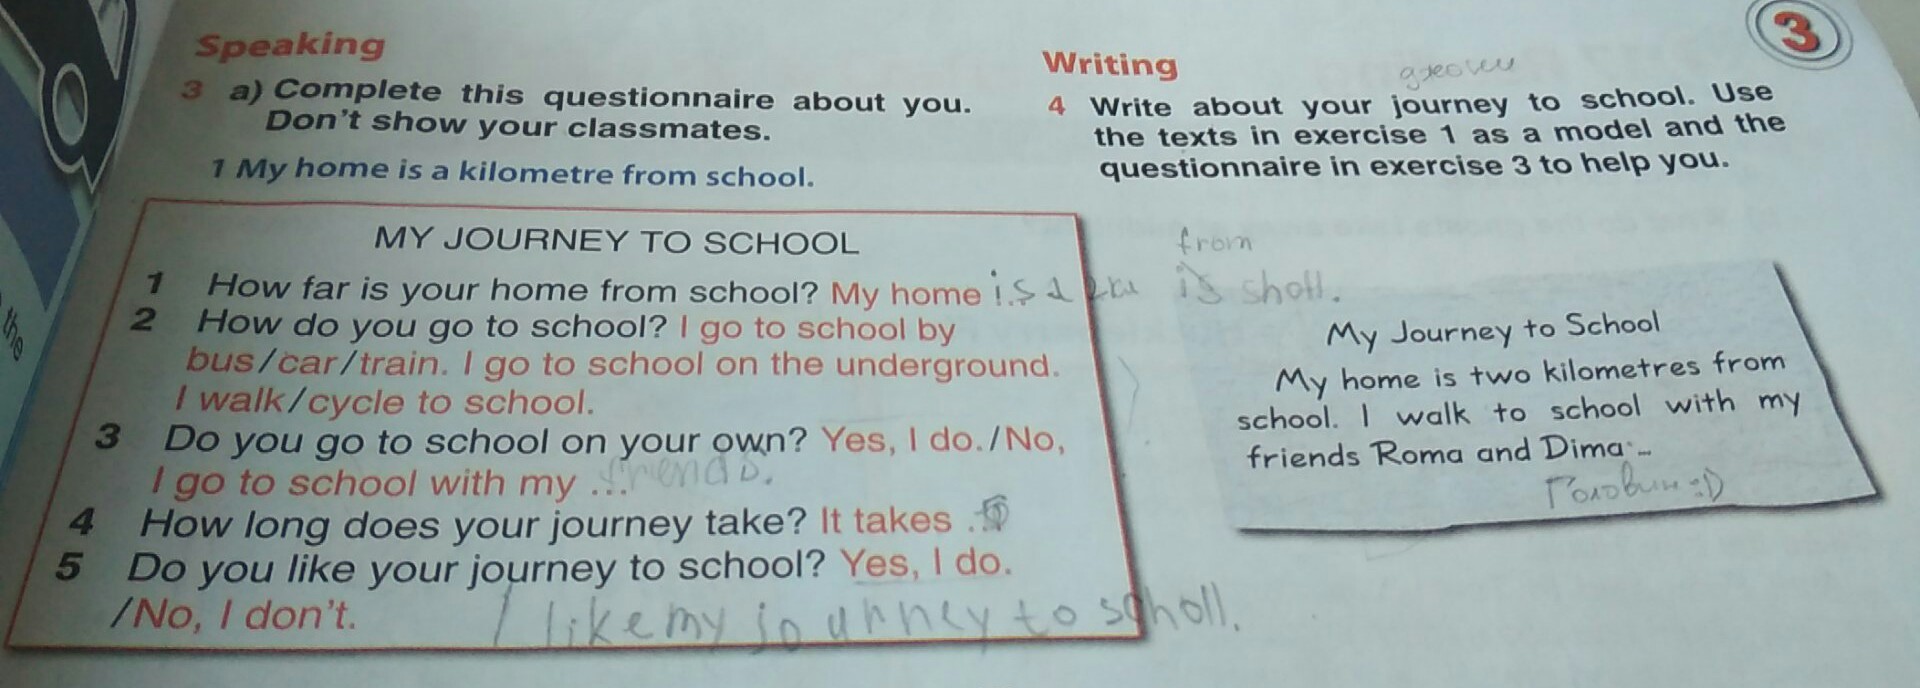 Speaking
3 a) Complete this questionnaire about you.
Don't show your classmates.
1 My home is a kilometre from school.
MY JOURNEY TO SCHOOL
1 How far is your home from school? My home is a
2 How do you go to school? I go to school by
bus/car/train. I go to school on the underground.
I walk/cycle to school.
3 Do you go to school on your own? Yes, I do./No,
I go to school with my ... friends.
4 How long does your journey take? It takes .
5 Do you like your journey to school? Yes, I do.
/No, I don't.
I like my journey to scholl.
the
3
Writing
4 Write about your journey to school. Use
the texts in exercise 1 as a model and the
questionnaire in exercise 3 to help you.
from
is sholl.
My Journey to School
My home is two kilometres from
school. I walk to school with my
friends Roma and Dima...